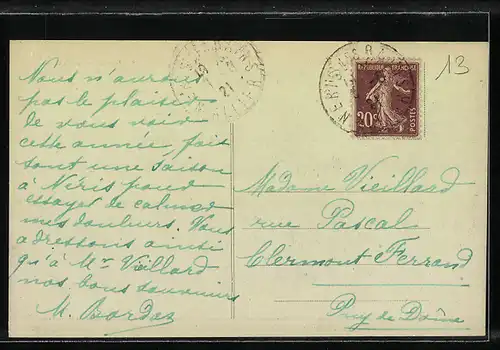 Nous n'aurons
pas le plaisir
de vous voir
cette année fait
sont une saison
à Néris pour
essayer de calmer
mes douleurs. Vous
adressons ainsi
qu'à Mr Vieillard
nos bons souvenirs
M. Bardaz
NERIS-LES-BAINS
21
REPUBLIQUE FRANÇAISE
20c
POSTES
13
Madame Vieillard
rue Pascal
Clermont Ferrand
Puy de Dôme